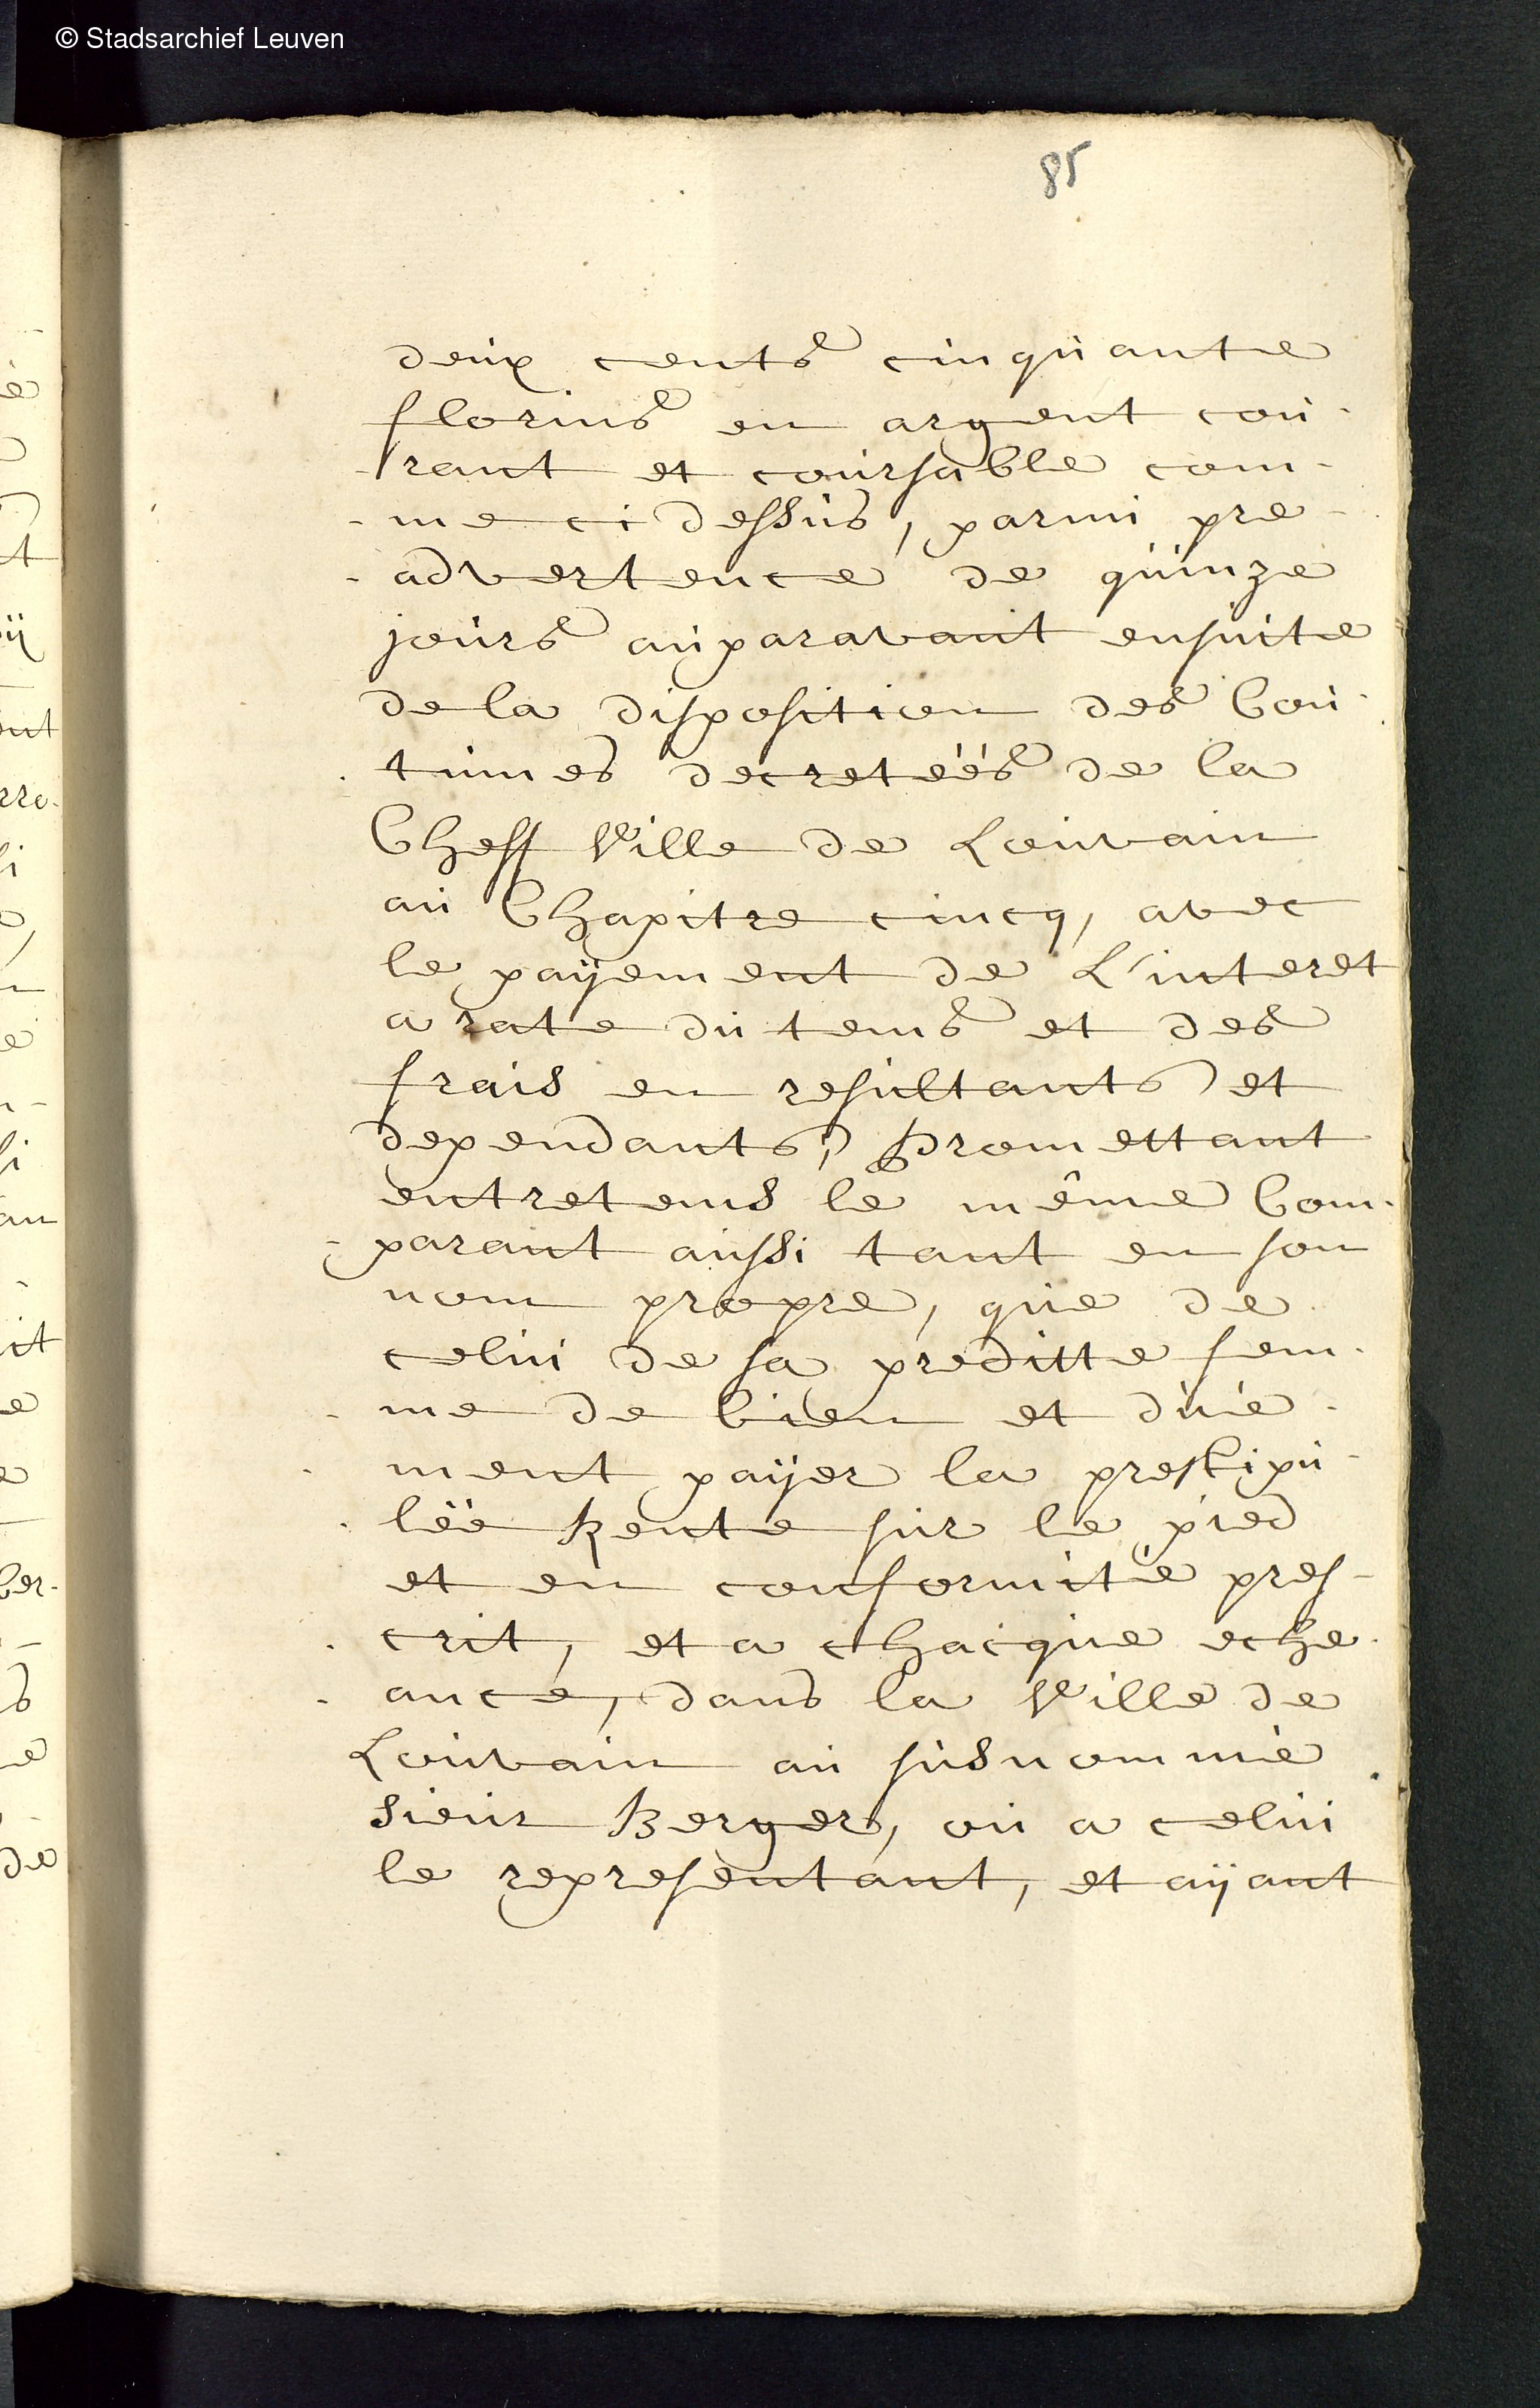 © Stadsarchief Leuven
85
deux cents cinquante
florins en argent cou-
rant et coursable com-
-me ci dessus, parmi pre-
-advertence de quinze
jours auparavant ensuite
de la disposition des Cou-
-tumes decretéés de la
Cheff Ville de Louvain
au Chapitre cincq, avec
le payement de L'interet
a rate du tems et des
frais en resultants et
dependants, Promettant
entretems le même Com-
-parant aussi tant en son
nom propre, que de
celui de sa preditte fem-
-me de bien et düe-
-ment payer la prestipu-
-léé Rente sur le pied
et en conformité pres-
-crit, et a chacque eche-
-ance, dans la Ville de
Louvain au susnommé
Sieur Berger, ou a celui
le representant, et ayant